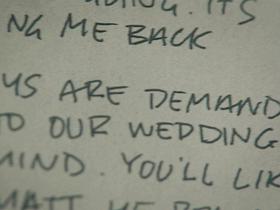 ITS
NG ME BACK
YS ARE DEMAND
O OUR WEDDING
MIND. YOU'LL LIK
MATT